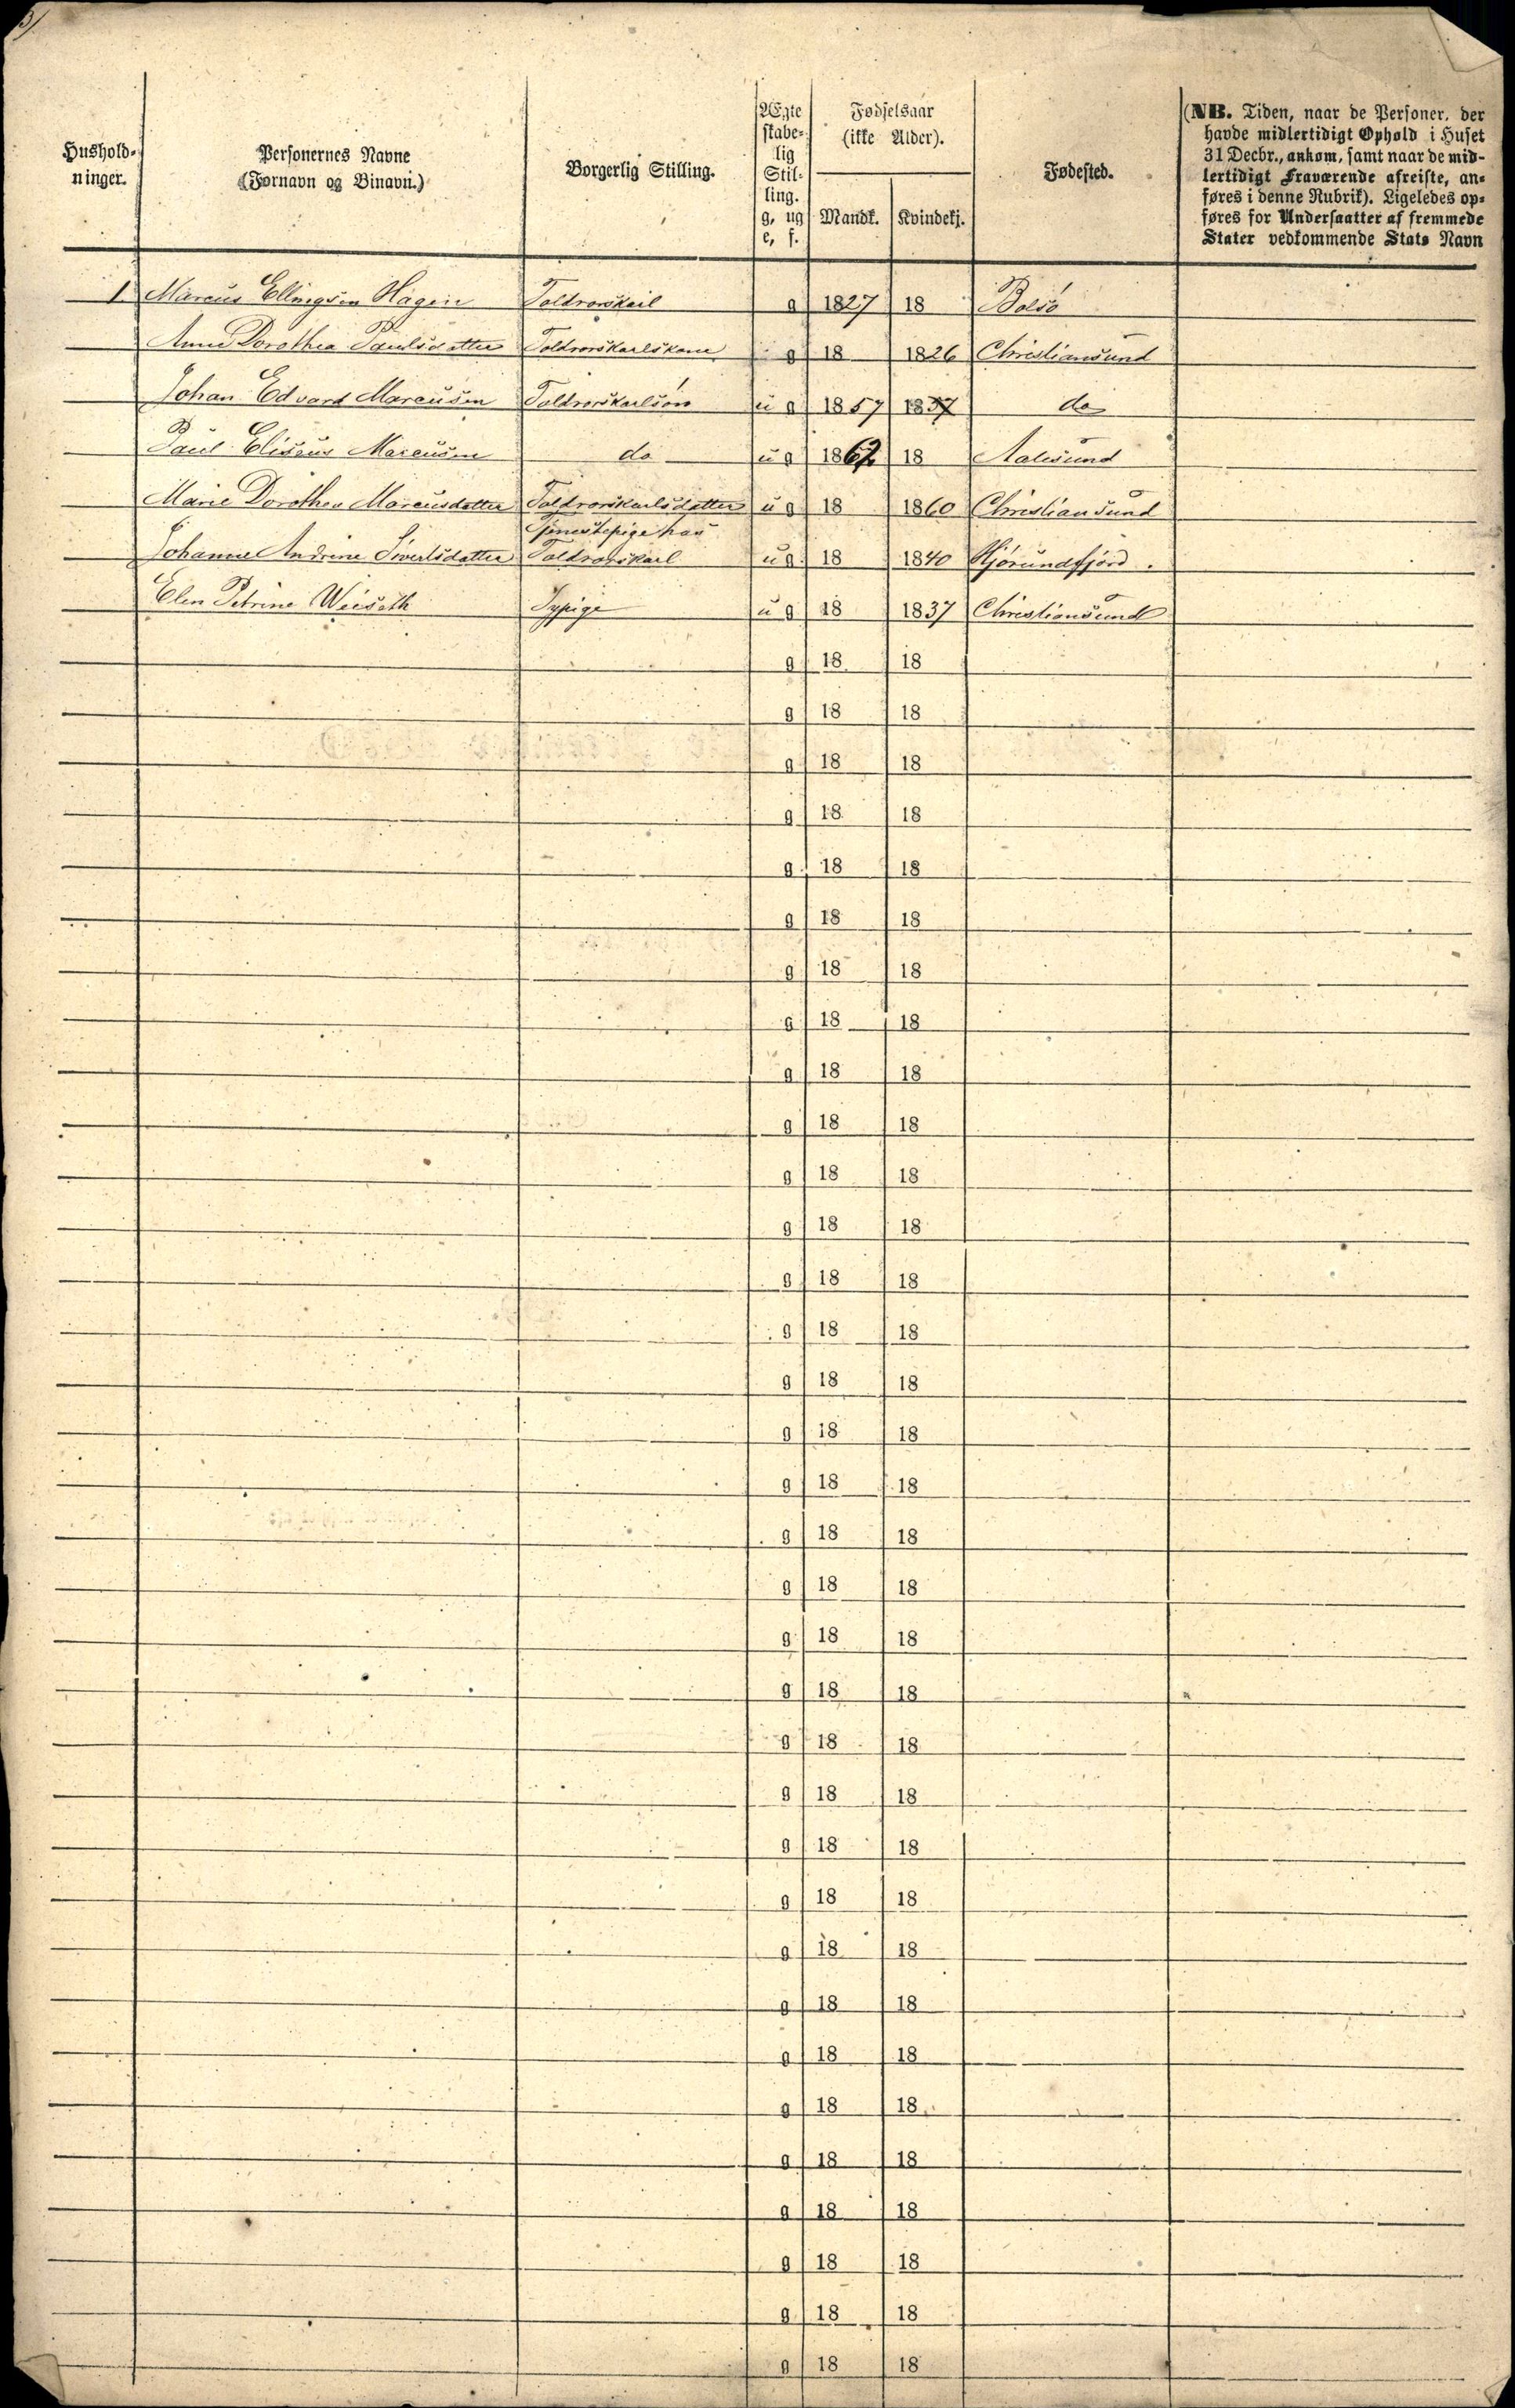 3/
Hushold-
ninger.
Personernes Navne
(Fornavn og Binavn.)
Borgerlig Stilling.
Ægte
skabe-
lig
Stil-
ling.
g, ug
e, f.
Fødselsaar
(ikke Alder).
Mandk. Kvindekj.
Fødested.
(NB. Tiden, naar de Personer, der
havde midlertidigt Ophold i Huset
31 Decbr., ankom, samt naar de mid-
lertidigt Fraværende afreiste, an-
føres i denne Rubrik). Ligeledes op-
føres for Undersaatter af fremmede
Stater vedkommende Stats Navn
1 Marcus Ellingsen Hagen Toldrorskarl g 1827 18 Bolsö
Anne Dorothea Paulsdatter Toldrorskarlskone g 18 1826 Christiansund
Johan Edvard Marcusen Toldrorskarlsön u g 1857 1837 do
Paul Eliseus Marcusen do u g 1862 18 Aalesund
Marie Dorothea Marcusdatter Toldrorskarlsdatter u g 18 1860 Christiansund
Tjenestepige hos
Johanne Andrine Sivertsdatter Toldrorskarl u g 18 1840 Hjörundfjord.
Elen Petrine Weiseth Sypige u g 18 1837 Christiansund
g 18 18
g 18 18
g 18 18
g 18 18
g 18 18
g 18 18
g 18 18
g 18 18
g 18 18
g 18 18
g 18 18
g 18 18
g 18 18
g 18 18
g 18 18
g 18 18
g 18 18
g 18 18
g 18 18
g 18 18
g 18 18
g 18 18
g 18 18
g 18 18
g 18 18
g 18 18
g 18 18
g 18 18
g 18 18
g 18 18
g 18 18
g 18 18
g 18 18
g 18 18
g 18 18